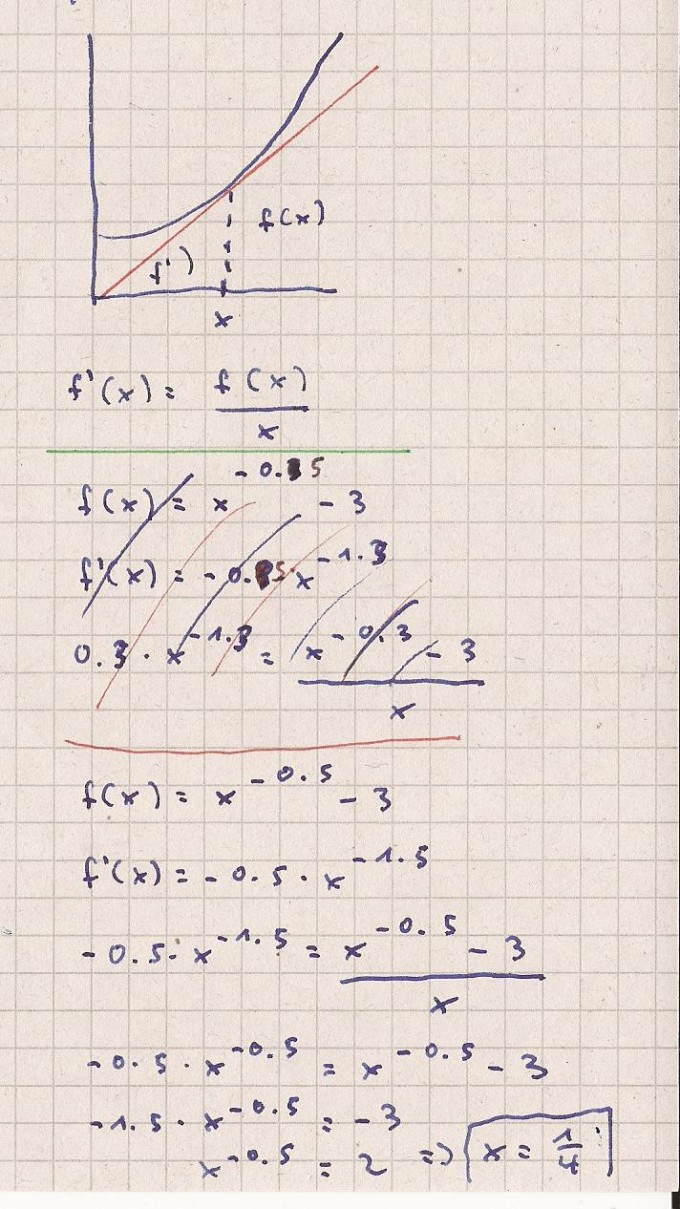 f(x)
f')
x
f'(x) = f(x) / x
f(x) = x^-0.5 - 3
f'(x) = -0.5 · x^-1.3
0.3 · x^-1.3 = x^-0.3 - 3 / x
f(x) = x^-0.5 - 3
f'(x) = -0.5 · x^-1.5
-0.5 · x^-1.5 = x^-0.5 - 3 / x
-0.5 · x^-0.5 = x^-0.5 - 3
-1.5 · x^-0.5 = -3
x^-0.5 = 2 => x = 1/4